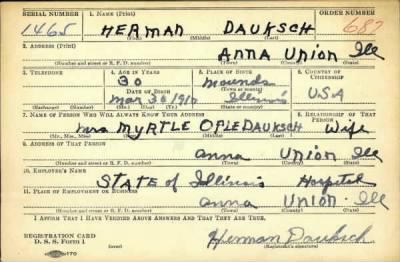 SERIAL NUMBER 1. NAME (Print) ORDER NUMBER
1465 HERMAN DAUKSCH 687
(First) (Middle) (Last)
2. ADDRESS (Print)
Anna Union Ill
(Number and street or R. F. D. number) (Town) (County) (State)
3. TELEPHONE 4. AGE IN YEARS 5. PLACE OF BIRTH 6. COUNTRY OF CITIZENSHIP
30 Mounds
DATE OF BIRTH (Town or county) USA
Mar 30 1910 Illinois
(Exchange) (Number) (Mo.) (Day) (Yr.) (State or country)
7. NAME OF PERSON WHO WILL ALWAYS KNOW YOUR ADDRESS 8. RELATIONSHIP OF THAT PERSON
Mrs MYRTLE OPLE DAUKSCH Wife
(Mr., Mrs., Miss) (First) (Middle) (Last)
9. ADDRESS OF THAT PERSON
Anna Union Ill
(Number and street or R. F. D. number) (Town) (County) (State)
10. EMPLOYER'S NAME
STATE of Illinois Hospital
11. PLACE OF EMPLOYMENT OR BUSINESS
Anna Union Ill
(Number and street or R. F. D. number) (Town) (County) (State)
I AFFIRM THAT I HAVE VERIFIED ABOVE ANSWERS AND THAT THEY ARE TRUE.
REGISTRATION CARD
D. S. S. Form 1 (over) Herman Dauksch
(Registrant's signature)